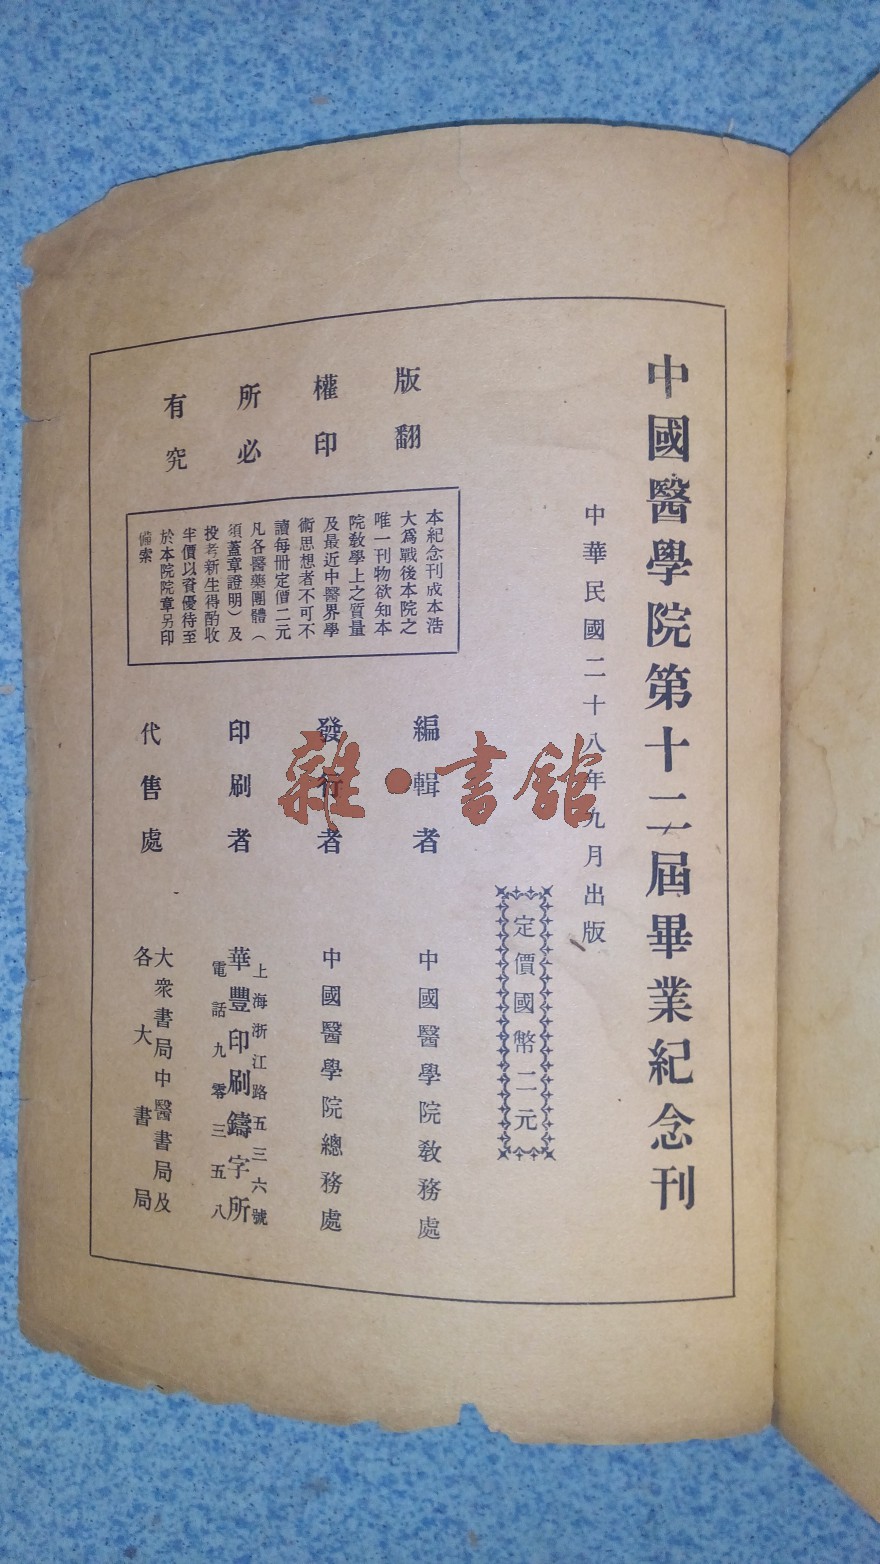 中國醫學院第十二屆畢業紀念刊
中華民國二十八年九月出版
定價國幣二元
版權所有
翻印必究
本紀念刊成本浩
大爲戰後本院之
唯一刊物欲知本
院敎學上之質量
及最近中醫界學
術思想者不可不
讀每冊定價二元
凡各醫藥團體（
須蓋章證明）及
投考新生得酌收
半價以資優待至
於本院院章另印
備索
編輯者
中國醫學院敎務處
發行者
中國醫學院總務處
印刷者
上海浙江路五三六號
華豐印刷鑄字所
電話九零三五八
代售處
大衆書局中醫書局及
各大書局
雜·書館